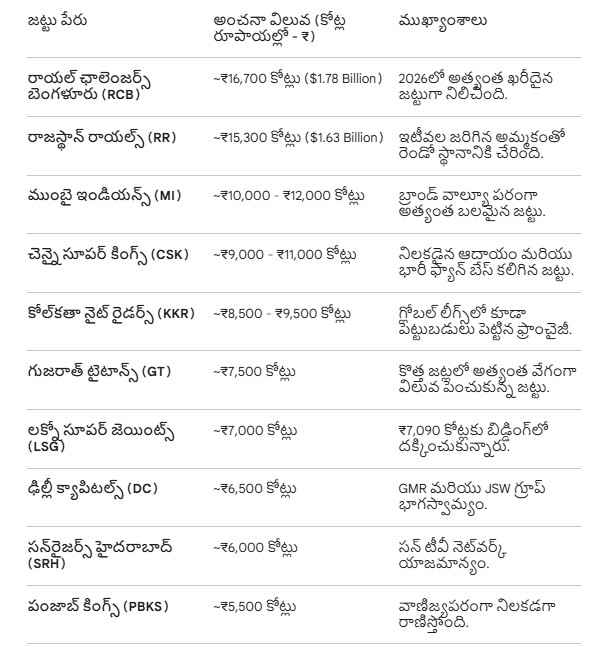 జట్టు పేరు
అంచనా విలువ (కోట్ల
రూపాయల్లో - ₹)
ముఖ్యాంశాలు
రాయల్ ఛాలెంజర్స్
బెంగళూరు (RCB)
~₹16,700 కోట్లు ($1.78 Billion)
2026లో అత్యంత ఖరీదైన
జట్టుగా నిలిచింది.
రాజస్థాన్ రాయల్స్ (RR)
~₹15,300 కోట్లు ($1.63 Billion)
ఇటీవల జరిగిన అమ్మకంతో
రెండో స్థానానికి చేరింది.
ముంబై ఇండియన్స్ (MI)
~₹10,000 - ₹12,000 కోట్లు
బ్రాండ్ వాల్యూ పరంగా
అత్యంత బలమైన జట్టు.
చెన్నై సూపర్ కింగ్స్ (CSK)
~₹9,000 - ₹11,000 కోట్లు
నిలకడైన ఆదాయం మరియు
భారీ ఫ్యాన్ బేస్ కలిగిన జట్టు.
కోల్‌కతా నైట్ రైడర్స్ (KKR)
~₹8,500 - ₹9,500 కోట్లు
గ్లోబల్ లీగ్స్‌లో కూడా
పెట్టుబడులు పెట్టిన ఫ్రాంచైజీ.
గుజరాత్ టైటాన్స్ (GT)
~₹7,500 కోట్లు
కొత్త జట్లలో అత్యంత వేగంగా
విలువ పెంచుకున్న జట్టు.
లక్నో సూపర్ జెయింట్స్
(LSG)
~₹7,000 కోట్లు
₹7,090 కోట్లకు బిడ్డింగ్‌లో
దక్కించుకున్నారు.
ఢిల్లీ క్యాపిటల్స్ (DC)
~₹6,500 కోట్లు
GMR మరియు JSW గ్రూప్
భాగస్వామ్యం.
సన్‌రైజర్స్ హైదరాబాద్
(SRH)
~₹6,000 కోట్లు
సన్ టీవీ నెట్‌వర్క్
యాజమాన్యం.
పంజాబ్ కింగ్స్ (PBKS)
~₹5,500 కోట్లు
వాణిజ్యపరంగా నిలకడగా
రాణిస్తోంది.